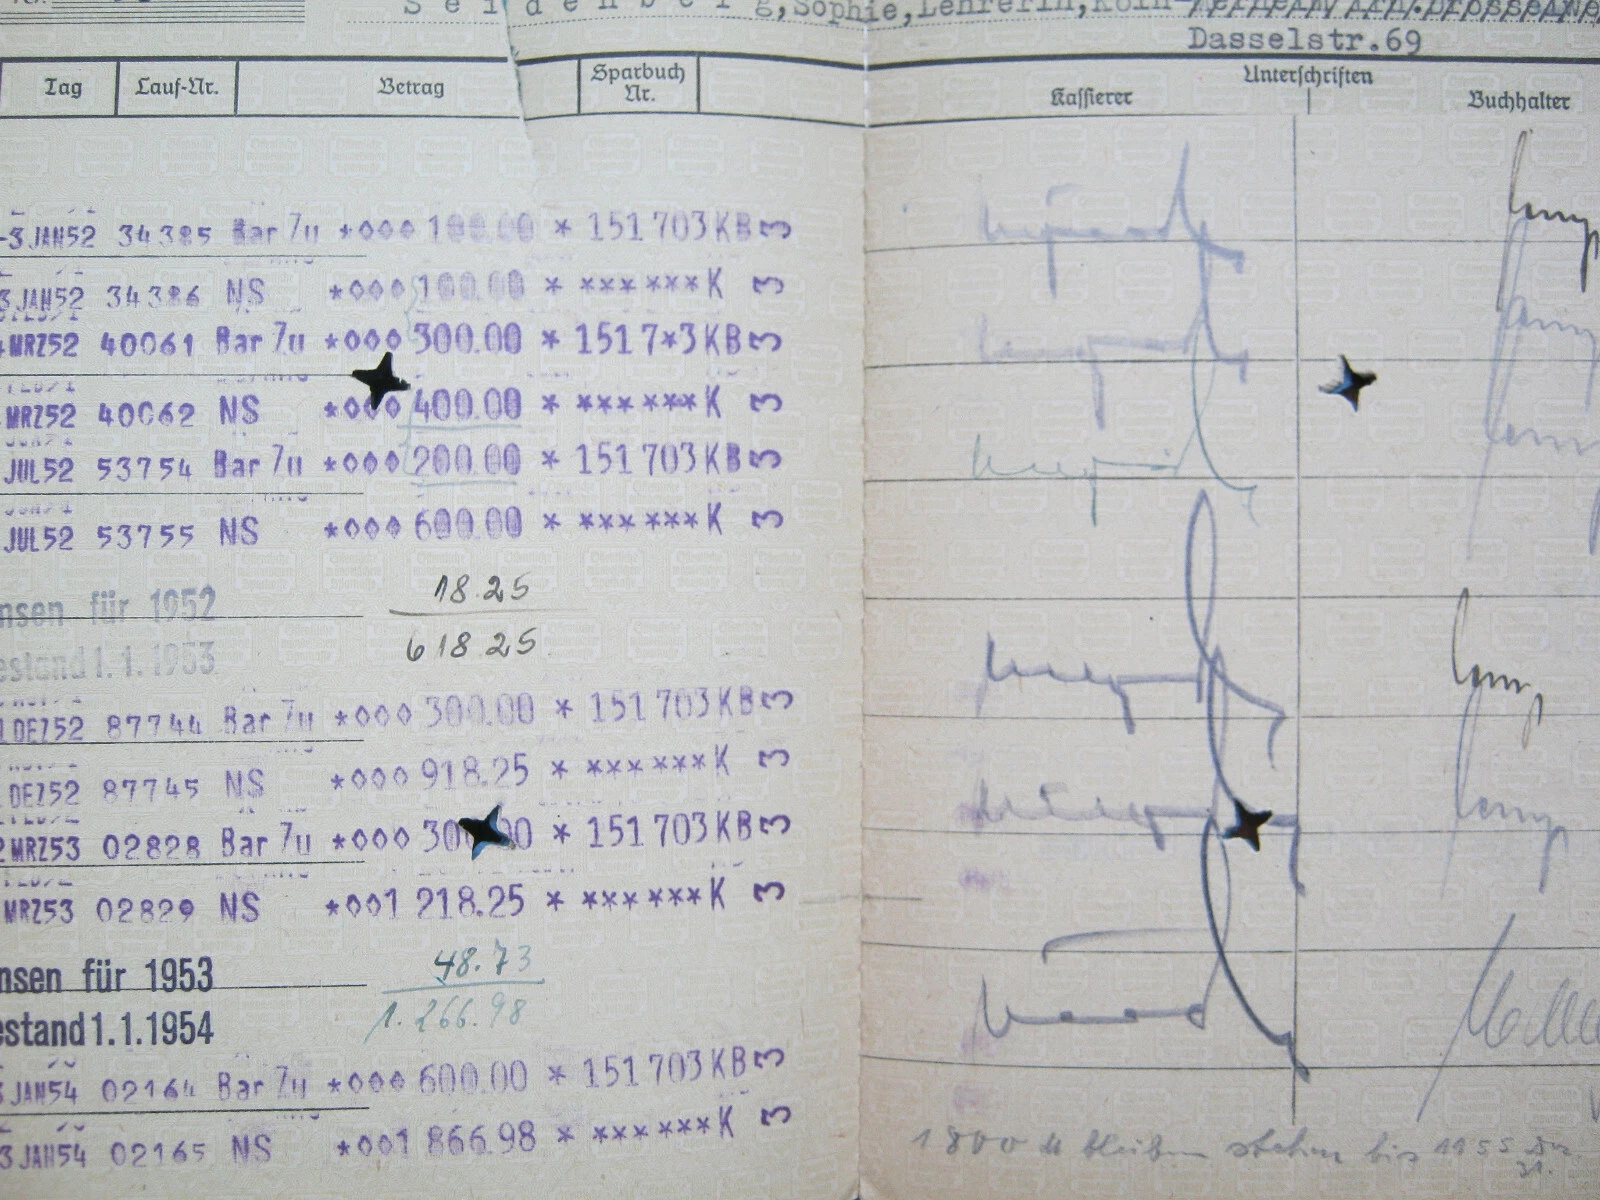 Seidenberg, Sophie, Lehrerin, Köln-
Dasselstr.69
Tag Lauf-Nr. Betrag Sparbuch Nr. Unterschriften Kassierer Buchhalter
-3 JAN52 34385 Bar Zu *000 100.00 * 151 703 KB 3
3 JAN52 34386 NS *000 100.00 * ****** K 3
MRZ52 40061 Bar Zu *000 300.00 * 151 7*3 KB 3
MRZ52 40062 NS *000 400.00 * ****** K 3
JUL52 53754 Bar Zu *000 200.00 * 151 703 KB 3
JUL52 53755 NS *000 600.00 * ****** K 3
nsen für 1952 18.25
estand 1.1.1953 618.25
DEZ52 87744 Bar Zu *000 300.00 * 151 703 KB 3
DEZ52 87745 NS *000 918.25 * ****** K 3
2 MRZ53 02828 Bar Zu *000 300.00 * 151 703 KB 3
MRZ53 02829 NS *001 218.25 * ****** K 3
nsen für 1953 48.73
estand 1.1.1954 1.266.98
3 JAN54 02164 Bar Zu *000 600.00 * 151 703 KB 3
3 JAN54 02165 NS *001 866.98 * ****** K 3
1800 M bleiben stehen bis 1955 Dez. 31.